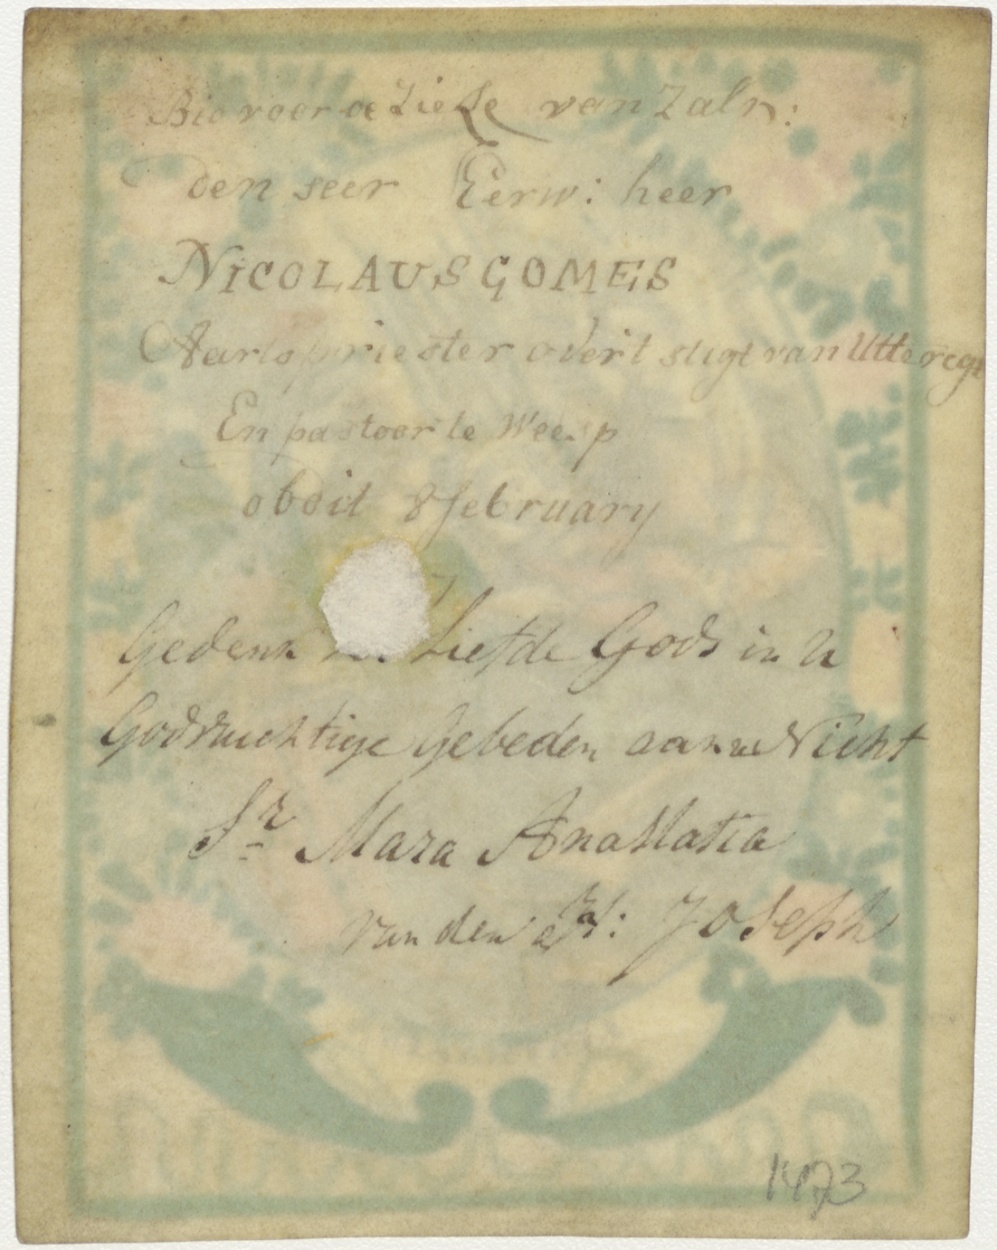 Bid voor de Zieke van Zalr:
den seer Eerw: heer
NICOLAUS GOMES
Aartspriester overt stigt van Utteregt
En pastoor te Weesp
oboit 8 february
Gedenk Liefde Gods in U
Godvruchtige Gebeden aan uw Nicht
Sr Mara Anastatia
van den H: Joseph
1473